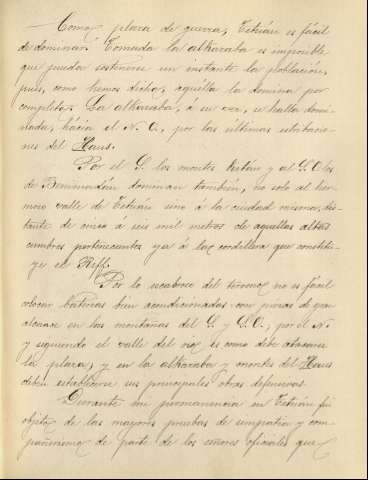 Como plaza de guerra, Tetuán es fácil
de dominar. Tomada la alkazaba es imposible
que pueda sostenerse un instante la población,
pues, como hemos dicho, aquélla la domina por
completo. La alkazaba, á su vez, se halla domi-
nada, hácia el N. O., por las últimas
nes del Haus.
Por el S. los montes y al S. O. los
de dominan también, no solo al her-
moso valle de Tetuán sino á la ciudad misma, dis-
tante de cinco á seis mil metros de aquellas altas
cumbres pertenecientes ya á la cordillera que constitu-
ye el Riff.
Por lo escabroso del terreno, no es fácil
colocar baterías bien acondicionadas con piezas de gran
alcance en las montañas del S. y S. O.; por el N.
y siguiendo el valle del rio es como debe atacarse
la plaza, y en la alkazaba y montes del Haus
deben establecerse sus principales obras defensivas.
Durante mi permanencia en Tetuán fuí
objeto de las mayores pruebas de simpatía y com-
pañerismo de parte de los señores oficiales que